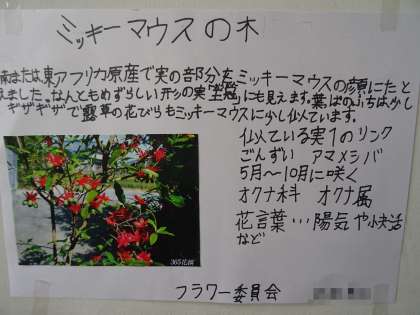 ミッキーマウスの木
南または東アフリカ原産で実の部分をミッキーマウスの顔にたと
えました。なんともめずらしい形の実「王冠」にも見えます。葉っぱのふちは少し
ギザギザで露草の花びらもミッキーマウスに少し似ています。
似ている実1のリンク
ごんずい アマメシバ
5月〜10月に咲く
オクナ科 オクナ属
花言葉…陽気や快活
など
365花撰
フラワー委員会